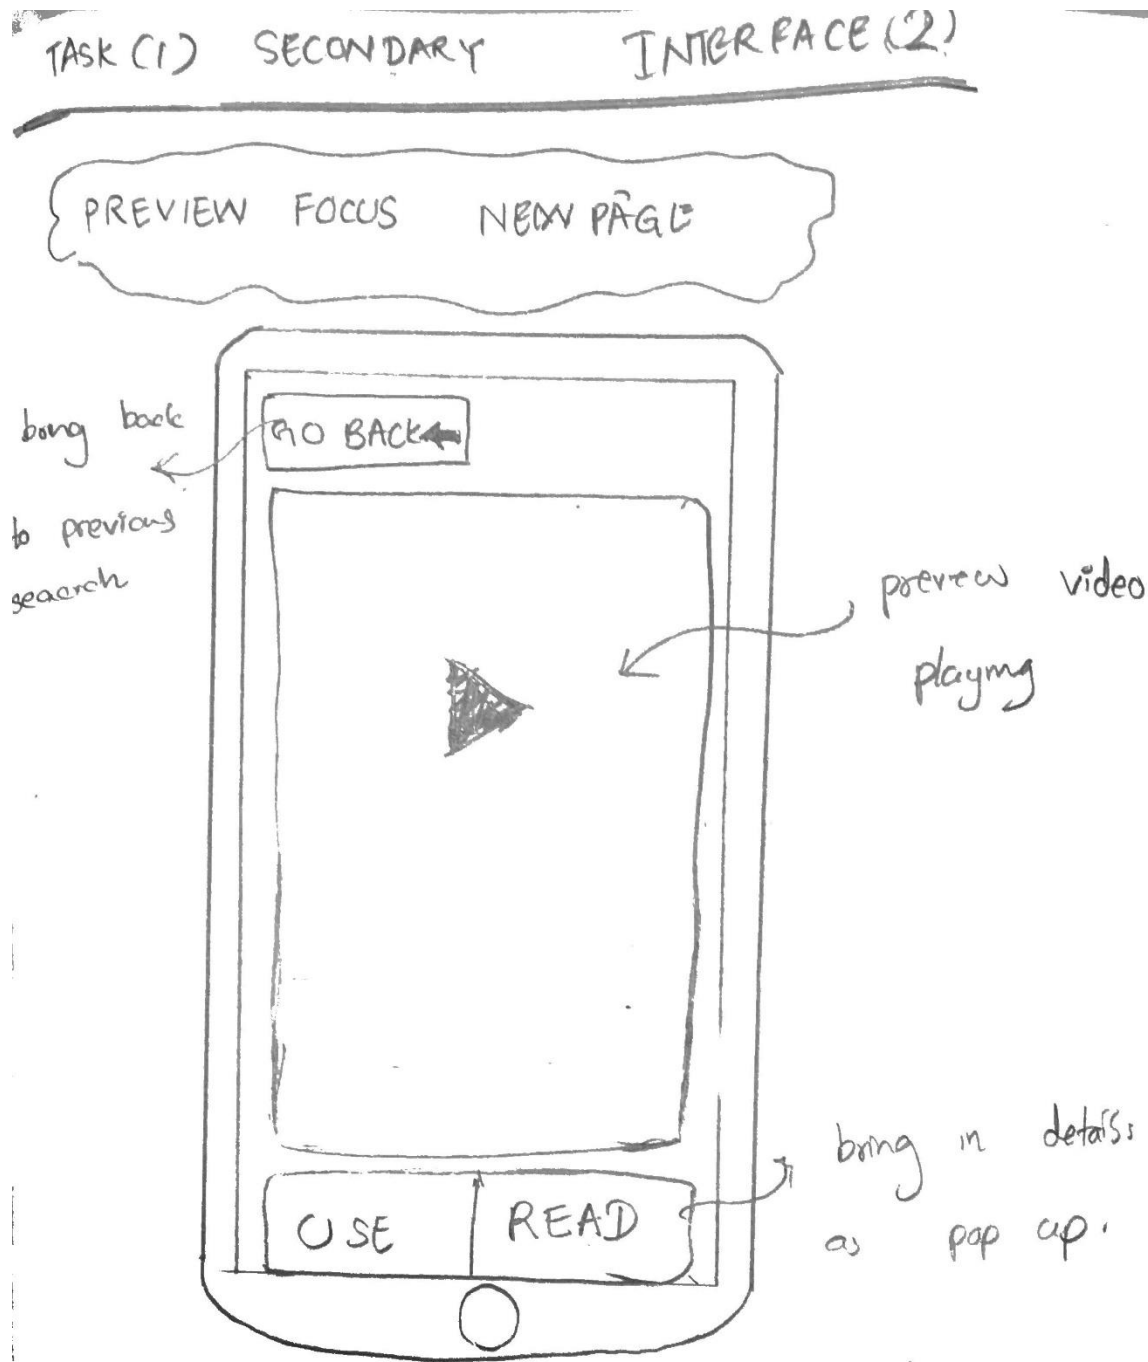 TASK (1) SECONDARY INTERFACE (2)
PREVIEW FOCUS NEW PAGE
GO BACK
bring back
to previous
seaarch
preview video
playing
USE
READ
bring in details
as pop up.